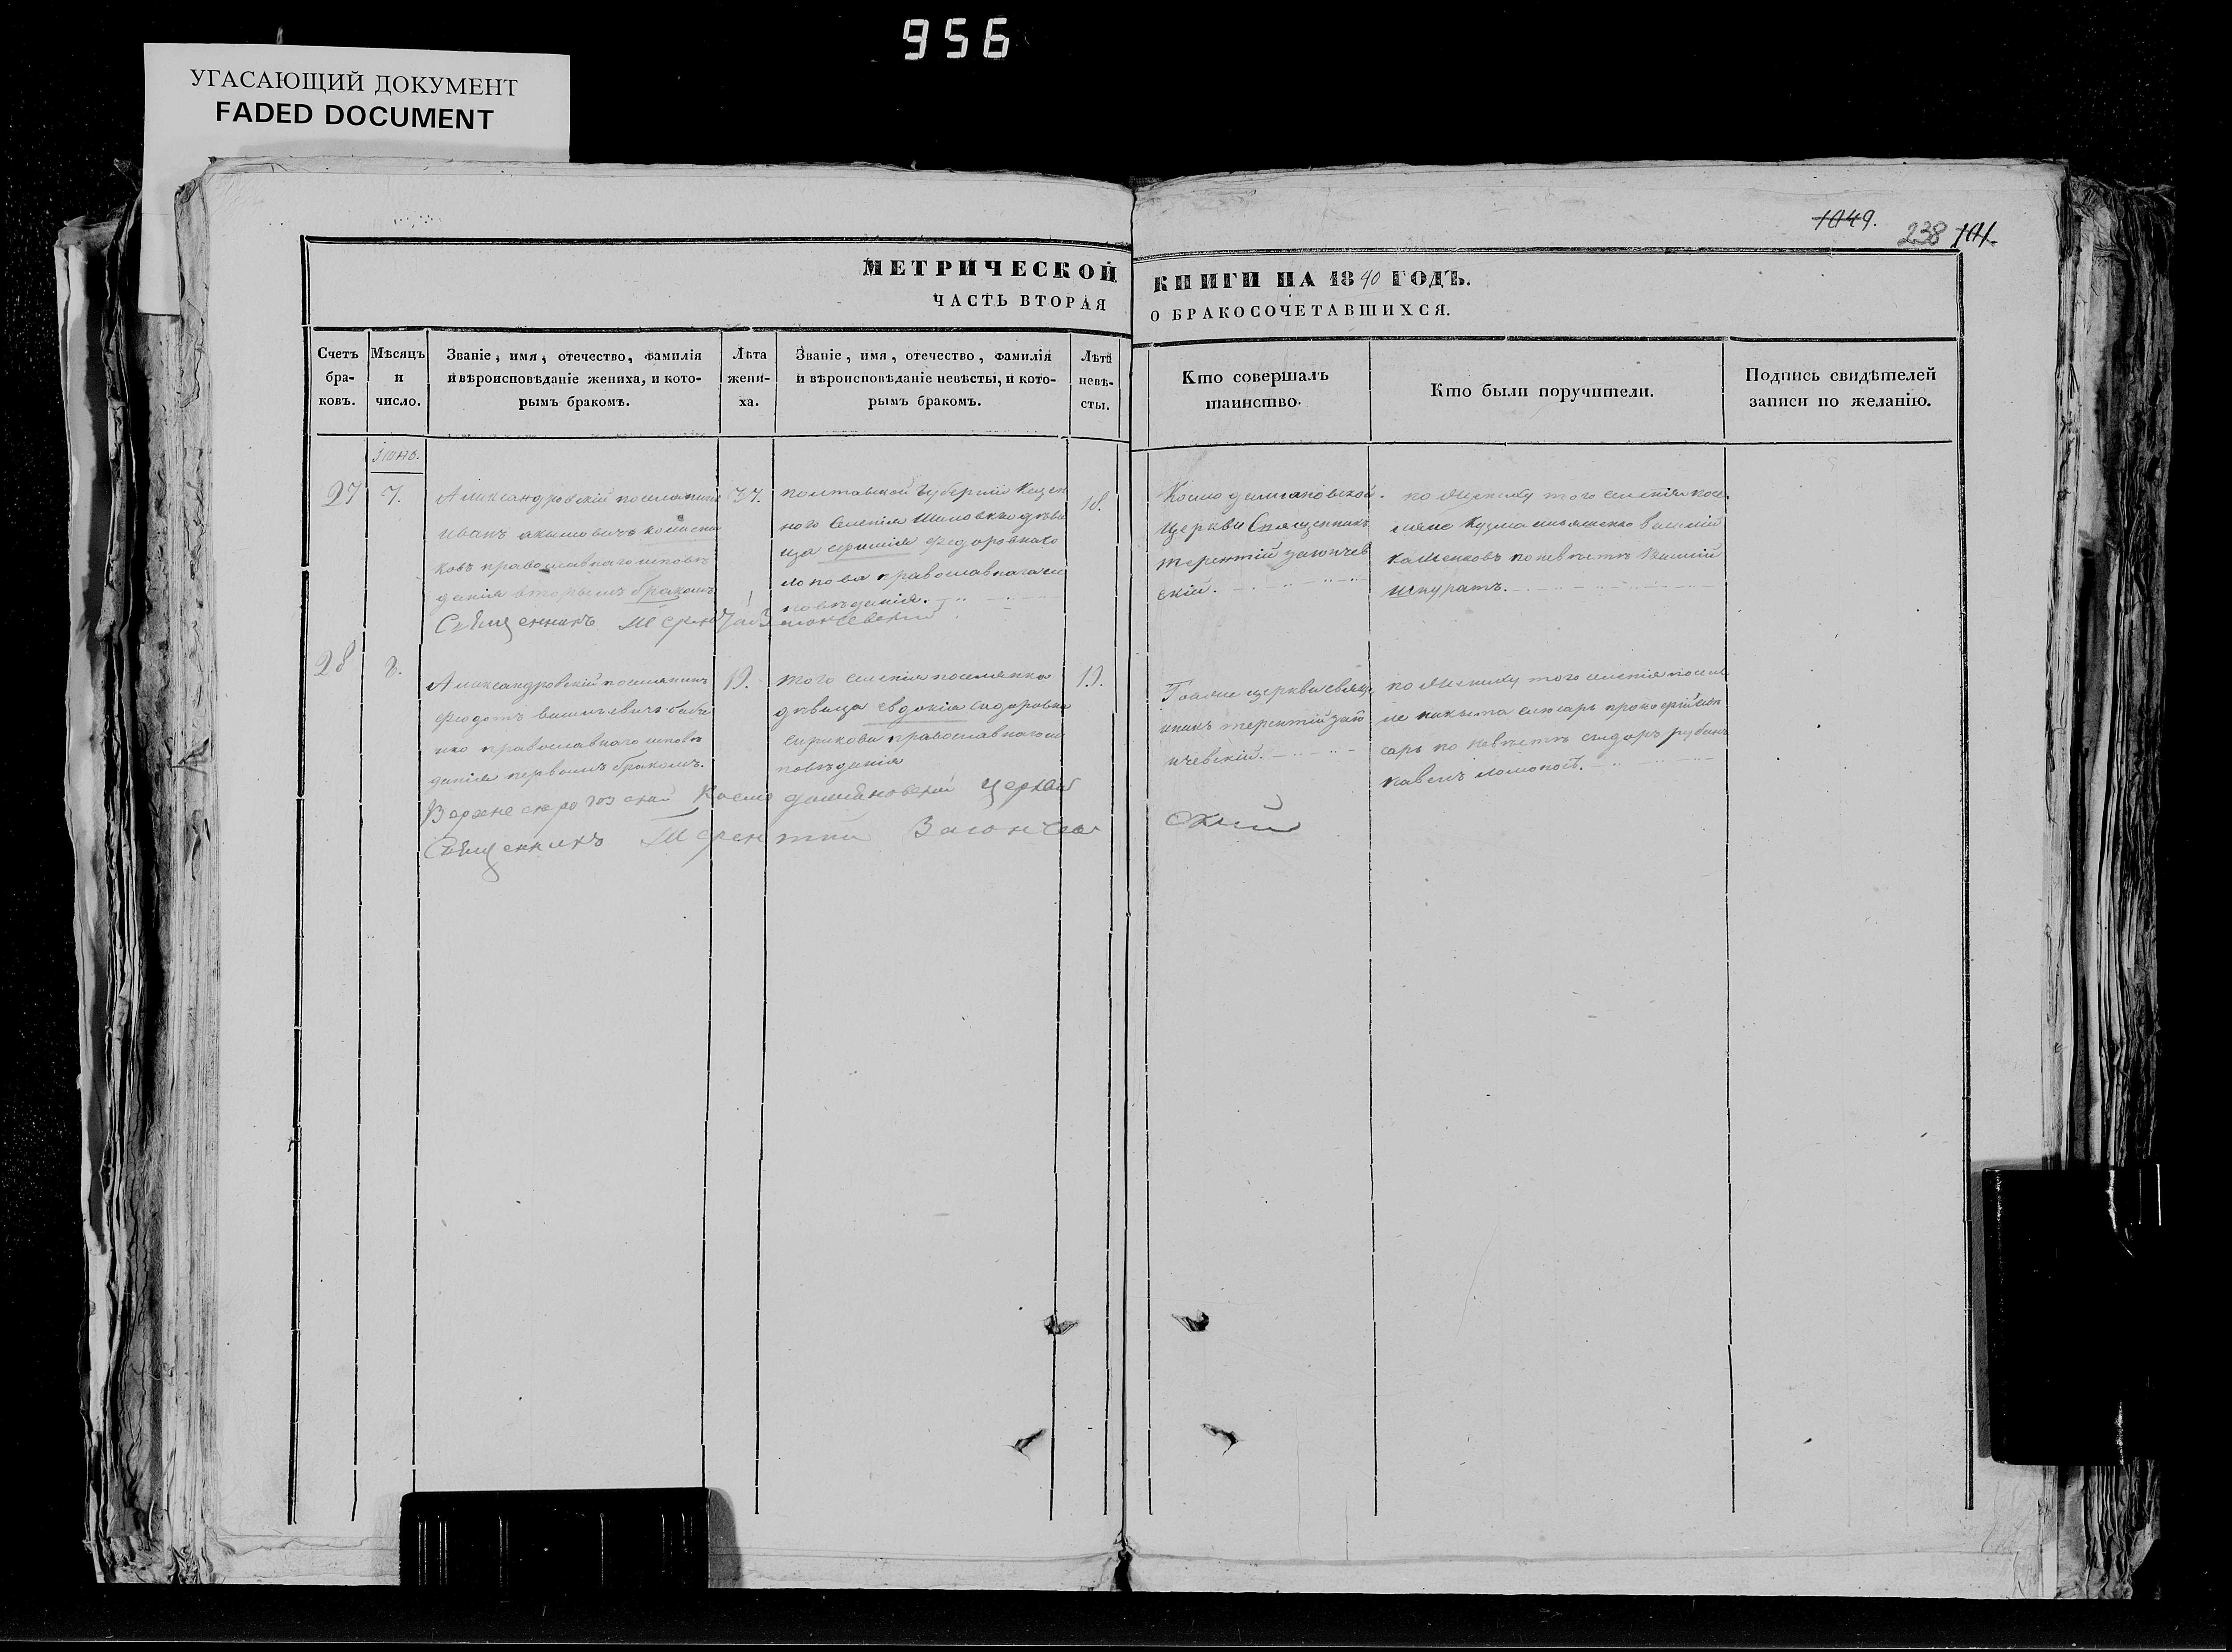 956
УГАСАЮЩИЙ ДОКУМЕНТ
FADED DOCUMENT
1049.
238 101.
МЕТРИЧЕСКОЙ КНИГИ НА 1840 ГОДЪ.
ЧАСТЬ ВТОРАЯ О БРАКОСОЧЕТАВШИХСЯ.
Счетъ бра-ковъ.
Мѣсяцъ и число.
Званіе, имя, отечество, фамилія
и вѣроисповѣданіе жениха, и кото-
рымъ бракомъ.
Лѣта жени-ха.
Званіе, имя, отечество, фамилія
и вѣроисповѣданіе невѣсты, и кото-
рымъ бракомъ.
Лѣта невѣ-сты.
Кто совершалъ
таинство.
Кто были поручители.
Подпись свидѣтелей
записи по желанію.
27
7.
Александровскій поселянинъ
иванъ
ковъ православнаго исповѣ
данія вторымъ бракомъ
37.
полтавской Губерніи Казен
ного Селенія дѣви
ца Федоровна
православнаго ис
повѣданія.
18.
Космодаміановской
Церкви Священникъ
терентій загончев
скій.
по Жениху того селенія посе
ляне Кузма Василій
по невѣстѣ
шкуратъ.
Священникъ Терентій Загончевский
28
8.
Александровскій поселянинъ
Феодотъ васильевичъ
православнаго исповѣ
данія первымъ бракомъ.
19.
того селенія поселянка
дѣвица евдокія сидоровна
православнаго ис
повѣданія
19.
Тояже церкви свяще
нникъ терентій заго
нчевскій.
по Жениху того селенія поселя
не никыта слюсарь прокофій слю
сарь по невѣстѣ сидоръ рубанъ
павелъ
Космодамиановской Церкви
Священникъ Терентий Загончевский